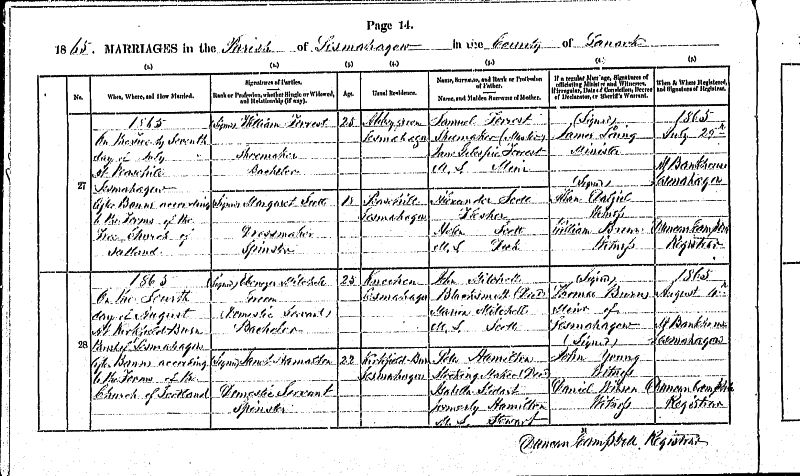 Page 14.
1865. MARRIAGES in the Parish of Lesmahagow in the County of Lanark
(1.) (2.) (3.) (4.) (5.) (6.) (7.)
No.
When, Where, and How Married.
Signatures of Parties.
Rank or Profession, whether Single or Widowed, and Relationship (if any).
Age.
Usual Residence.
Name, Surname, and Rank or Profession of Father.
Name, and Maiden Surname of Mother.
If a regular Marriage, Signatures of officiating Minister and Witnesses.
If irregular, Date of Conviction, Decree of Declarator, or Sheriff's Warrant.
When & Where Registered, and Signature of Registrar.
27
1865
On the twenty Seventh
day of July
At Rosehill
Lesmahagow
After Banns according
to the Forms of the
Free Church of
Scotland
(Signed) William Forrest
Shoemaker
Bachelor
(Signed) Margaret Scott
Dressmaker
Spinster
25
18
Abbeygreen
Lesmahagow
Rosehill
Lesmahagow
Samuel Forrest
Shoemaker (Master)
Jane Gillespie Forrest
M. S. Muir
Alexander Scott
Flesher
Helen Scott
M. S.
(Signed)
James Laing
Minister
(Signed)
Witness
William Brown
Witness
1865
July 29th
At Bankhouse
Lesmahagow
Duncan Campbell
Registrar
28
1865
On the Fourth
day of August
At Kirkfield Burn
Parish of Lesmahagow
After Banns according
to the Forms of the
Church of Scotland
(Signed) Ebenezer Mitchell
Groom
(Domestic Servant)
Bachelor
(Signed) Janet Hamilton
Domestic Servant
Spinster
25
22
Lesmahagow
Kirkfield Burn
Lesmahagow
John Mitchell
Blacksmith (Dead)
Marion Mitchell
M. S. Scott
Peter Hamilton
Stocking Maker (Dead)
Isabella
formerly Hamilton
M. S. Stewart
(Signed)
Thomas Burns
Minr. of
Lesmahagow
(Signed)
John Young
Witness
Daniel Wilson
Witness
1865
August
At Bankhouse
Lesmahagow
Duncan Campbell
Registrar
Duncan Campbell, Registrar